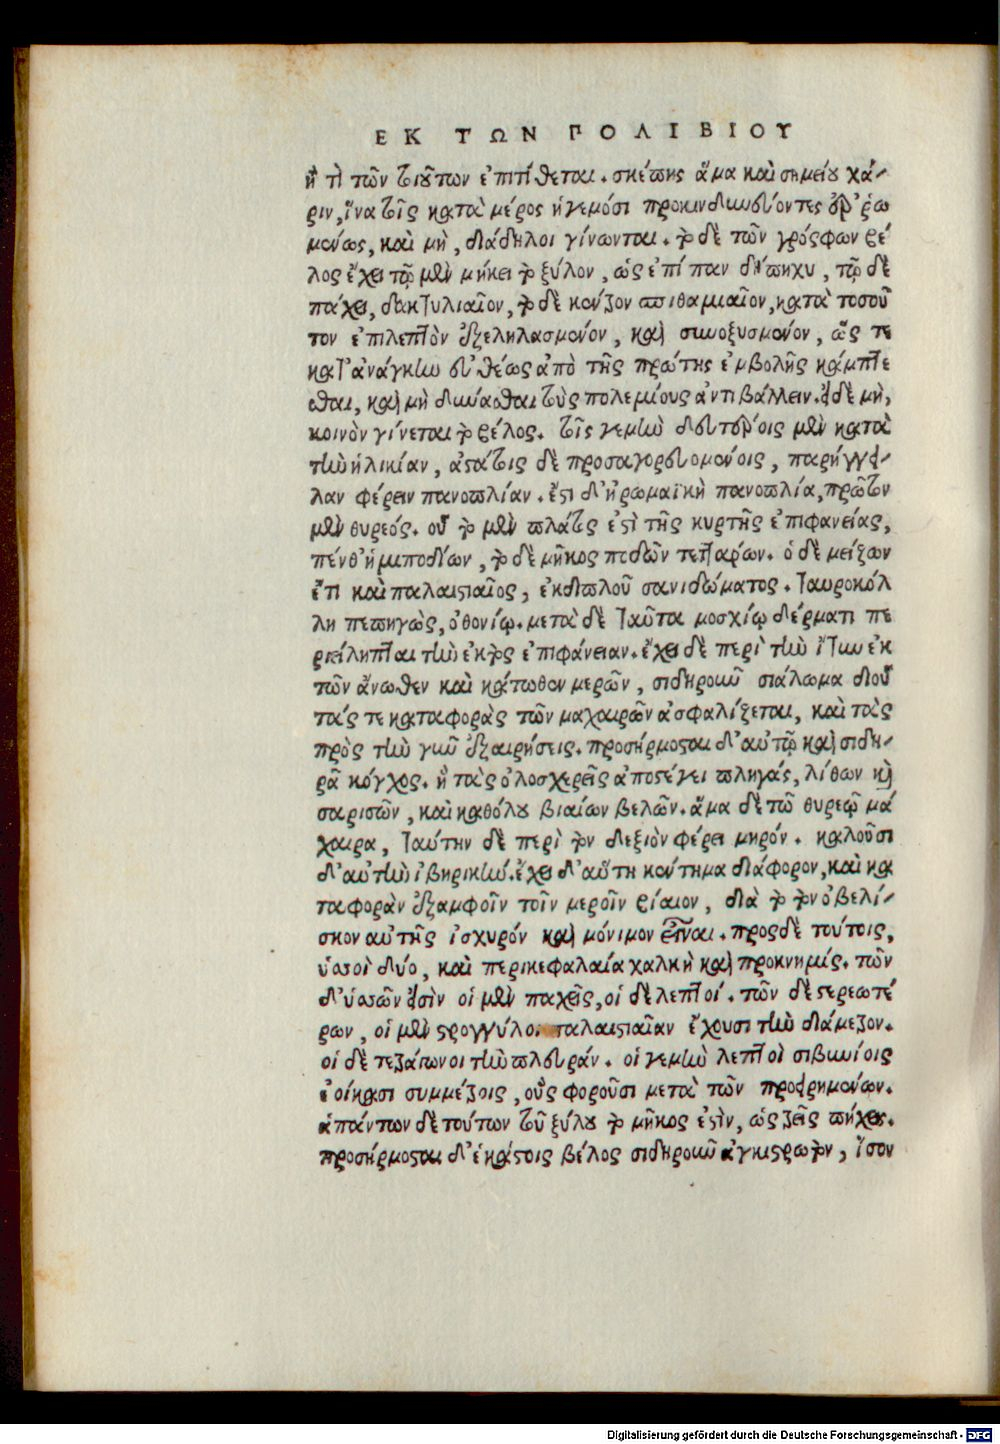 ΕΚ ΤΩΝ ΠΟΛΙΒΙΟΥ
ἤ τι τῶν τοιούτων ἐπιτίθεται. σκέπης ἅμα καὶ σημείου χά-
ριν, ἵνα τοῖς κατὰ μέρος ἡγεμόσι προκινδυνεύοντες ἐῤῥω
μένως, καὶ μὴ, διάδηλοι γίνωνται. τὸ δὲ τῶν γρόσφων βέ
λος ἔχει τῷ μὲν μήκει τὸ ξύλον, ὡς ἐπίπαν δίπηχυ, τῷ δὲ
πάχει, δακτυλιαῖον, τὸ δὲ κέντρον σπιθαμιαῖον, κατὰ τοσοῦ
τον ἐπιλεπτὸν ἐξεληλασμένον, καὶ συνοξυσμένον, ὥς τε
κατ' ἀνάγκην εὐθέως ἀπὸ τῆς πρώτης ἐμβολῆς κάμπτε
σθαι, καὶ μὴ δύνασθαι τοὺς πολεμίους ἀντιβάλλειν. εἰ δὲ μὴ,
κοινὸν γίνεται τὸ βέλος. τοῖς γεμὴν δευτέροις μὲν κατὰ
τὴν ἡλικίαν, ἀστάτοις δὲ προσαγορευομένοις, παρήγγει-
λαν φέρειν πανοπλίαν. ἔστι δ' ἡ ῥωμαϊκὴ πανοπλία, πρῶτον
μὲν θυρεός. οὗ τὸ μὲν πλάτος ἐστὶ τῆς κυρτῆς ἐπιφανείας,
πένθ' ἡμιποδίων, τὸ δὲ μῆκος ποδῶν τεττάρων. ὁ δὲ μείζων
ἔτι καὶ παλαιστιαῖος, ἐκ διπλοῦ σανιδώματος. ταυροκόλ
λη πεπηγὼς, ὀθονίῳ. μετὰ δὲ ταῦτα μοσχίῳ δέρματι πε
ριείληπται τὴν ἐκτὸς ἐπιφάνειαν. ἔχει δὲ περὶ τὴν ἴτυν ἐκ
τῶν ἄνωθεν καὶ κάτωθεν μερῶν, σιδηροῦν σιάλωμα διοῦ
τάς τε καταφορὰς τῶν μαχαιρῶν ἀσφαλίζεται, καὶ τὰς
πρὸς τὴν γῆν ἐξαιρήσεις. προσήρμοσται δ' αὐτῷ καὶ σιδη-
ρᾶ κόγχος. ἣ τὰς ὁλοσχερεῖς ἀποστέγει πληγάς, λίθων καὶ
σαρισῶν, καὶ καθόλου βιαίων βελῶν. ἅμα δὲ τῷ θυρεῷ μά
χαιρα, ταύτην δὲ περὶ τὸν δεξιὸν φέρει μηρόν. καλοῦσι
δ' αὐτὴν ἰβηρικήν. ἔχει δ' αὕτη κέντημα διάφορον, καὶ κα
ταφορὰν ἐξ ἀμφοῖν τοῖν μεροῖν βίαιον, διὰ τὸ τὸν ὀβελί-
σκον αὐτῆς ἰσχυρόν καὶ μόνιμον εἶναι. προς δὲ τούτοις,
ὑσσοὶ δύο, καὶ περικεφαλαία χαλκὴ καὶ προκνημίς. τῶν
δ' ὑσσῶν εἰσὶν οἱ μὲν παχεῖς, οἱ δὲ λεπτοί. τῶν δὲ στερεωτέ
ρων, οἱ μὲν στρογγύλοι παλαιστιαῖαν ἔχουσι τὴν διάμετρον.
οἱ δὲ τετράγωνοι τὴν πλευράν. οἱ γεμὴν λεπτοὶ σιβυνίοις
ἐοίκασι συμμέτροις, οὓς φοροῦσι μετὰ τῶν προειρημένων.
ἁπάντων δὲ τούτων τοῦ ξύλου τὸ μῆκος ἐστὶν, ὡς τρεῖς πήχεις.
προσήρμοσται δ' ἑκάστοις βέλος σιδηροῦν ἀγκιστρωτὸν, ἴσον
Digitalisierung gefördert durch die Deutsche Forschungsgemeinschaft - DFG